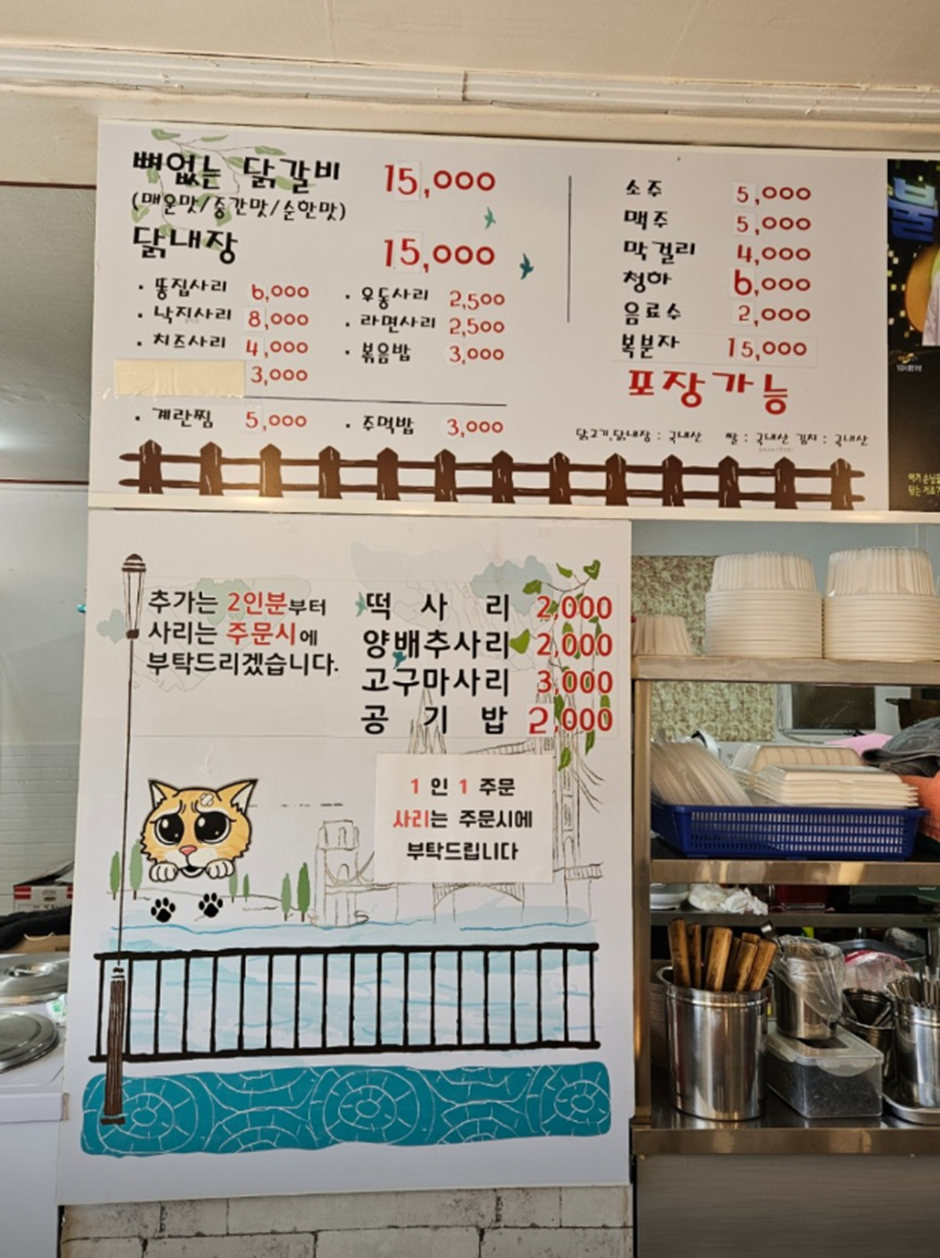 뼈없는 닭갈비 15,000
(매운맛/중간맛/순한맛)
닭내장 15,000
· 똥집사리 6,000
· 낙지사리 8,000
· 치즈사리 4,000
3,000
· 우동사리 2,500
· 라면사리 2,500
· 볶음밥 3,000
· 계란찜 5,000
· 주먹밥 3,000
소주 5,000
맥주 5,000
막걸리 4,000
청하 6,000
음료수 2,000
복분자 15,000
포장가능
닭고기,닭내장 : 국내산 쌀 : 국내산 김치 : 국내산
불
추가는 2인분부터
사리는 주문시에
부탁드리겠습니다.
떡 사 리 2,000
양배추사리 2,000
고구마사리 3,000
공 기 밥 2,000
1 인 1 주문
사리는 주문시에
부탁드립니다